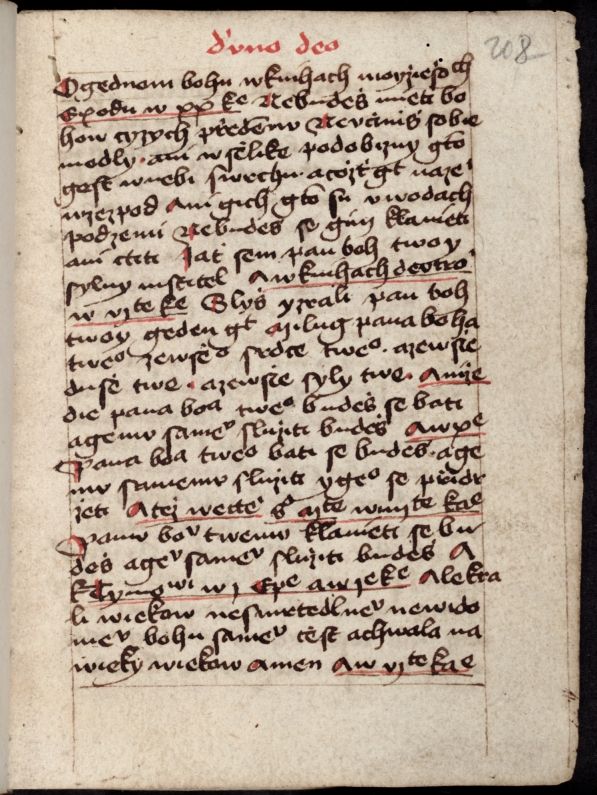 d'uno deo
208
O gednom bohu w knihach moyziešoch
Exodu w xx ke Nebudeš mieti bo
how cyzych předemnu Neučiniš sobie
modly · ani wšelike podobizny gto
gest wnebi swrchu · a cožt' gt naze
mzezpod Ani gich gto su v wodach
podzemi Nebudeš se gim klaněti
ani ctiti Jat' sem pan boh twoy
sylny mstitel A w knihach deutro
w vj te ke Slyš yzrali pan boh
twoy geden gt Milug pana boha
tweo zewšeo srdce tweo · azewšie
dušě twe · azewšie syly twe · Anize
die pana boa tweo budeš se bati
agemu sameu slúžiti budeš A w x ke
Pana boa tweo bati se budeš · a ge
mu samemu slúžiti y geo se přidr
žeti A tež wece
Panu bou twemu klaněti se bu
deš ageu sameu slúžiti budeš A
k Tymo wi w j Epe a w j ke Ale kra
li wiekow nesmrtedlneu newido
meu bohu sameu čest achwala na
wieky wiekow amen A w vj te kae